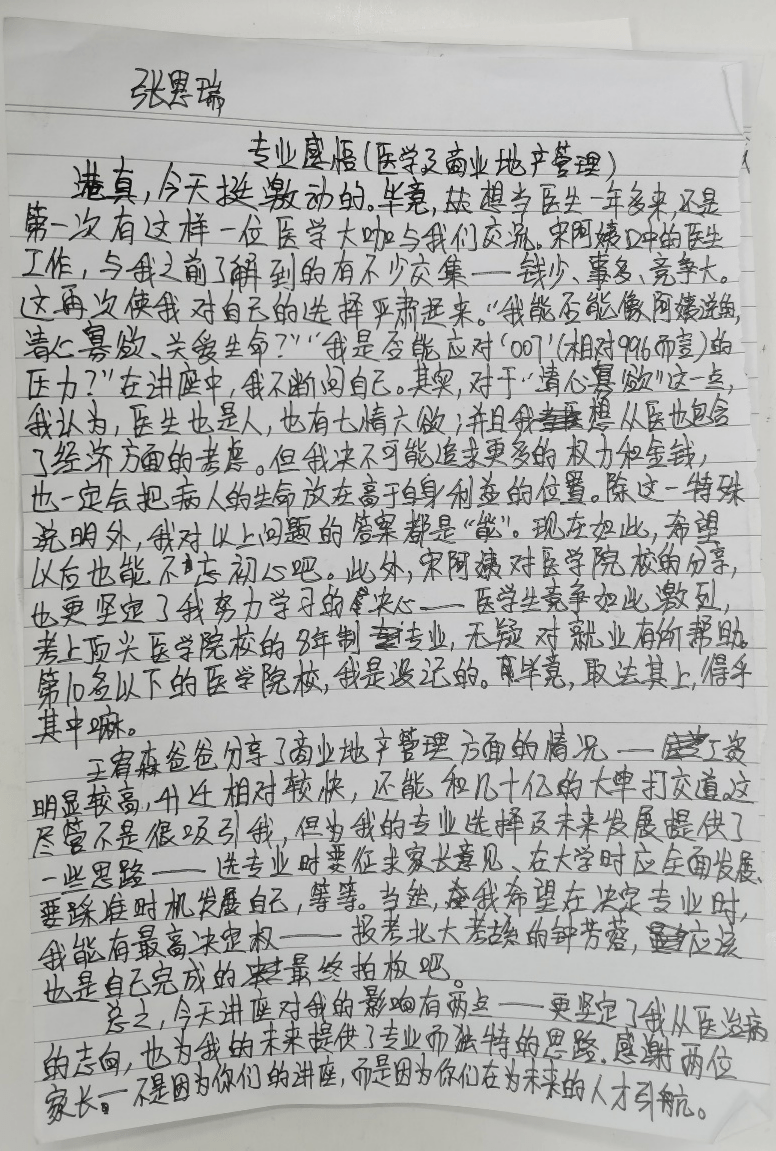 张思瑞
专业感悟(医学及商业地产管理)
港真,今天挺激动的。毕竟,从想当医生一年多来,还是
第一次有这样一位医学大咖与我们交流。宋阿姨口中的医生
工作,与我之前了解到的有不少交集——钱少、事多、竞争大。
这再次使我对自己的选择严肃起来。“我能否能像阿姨说的,
清心寡欲、关爱生命?”“我是否能应对‘007’(相对996而言)的
压力?”在讲座中,我不断问自己。其实,对于“清心寡欲”这一点,
我认为,医生也是人,也有七情六欲;并且我想从医也包含
了经济方面的考虑。但我决不可能追求更多的权力和金钱,
也一定会把病人的生命放在高于自身利益的位置。除这一特殊
说明外,我对以上问题的答案都是“能”。现在如此,希望
以后也能不忘初心吧。此外,宋阿姨对医学院校的分享,
也更坚定了我努力学习的决心——医学生竞争如此激烈,
考上顶尖医学院校的8年制专业,无疑对就业有所帮助。
第10名以下的医学院校,我是没记的。毕竟,取法其上,得乎
其中嘛。
王宥森爸爸分享了商业地产管理方面的情况——工资
明显较高,升迁相对较快,还能和几十亿的大单打交道。这
尽管不是很吸引我,但为我的专业选择及未来发展提供了
一些思路——选专业时要征求家长意见、在大学时应全面发展、
要踩准时机发展自己,等等。当然,我希望在决定专业时,
我能有最高决定权——报考北大考古系的钟芳蓉,应该
也是自己完成的最终拍板吧。
总之,今天讲座对我的影响有两点——更坚定了我从医治病
的志向,也为我的未来提供了专业而独特的思路。感谢两位
家长——不是因为你们的讲座,而是因为你们在为未来的人才引航。